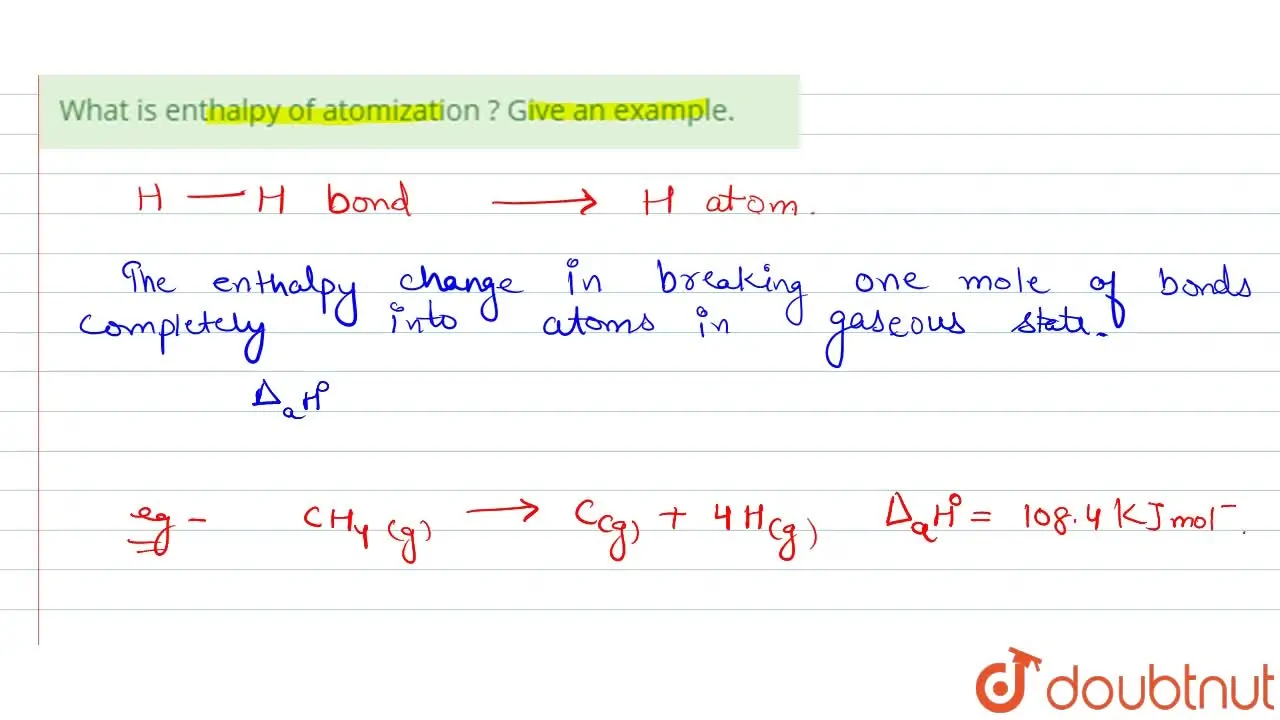 What is enthalpy of atomization ? Give an example.
H — H bond ⟶ H atom.
The enthalpy change in breaking one mole of bonds
completely into atoms in gaseous state.
ΔₐH°
eg – CH₄ (g) ⟶ C(g) + 4H(g) ΔₐH° = 108.4 KJ mol⁻.
doubtnut